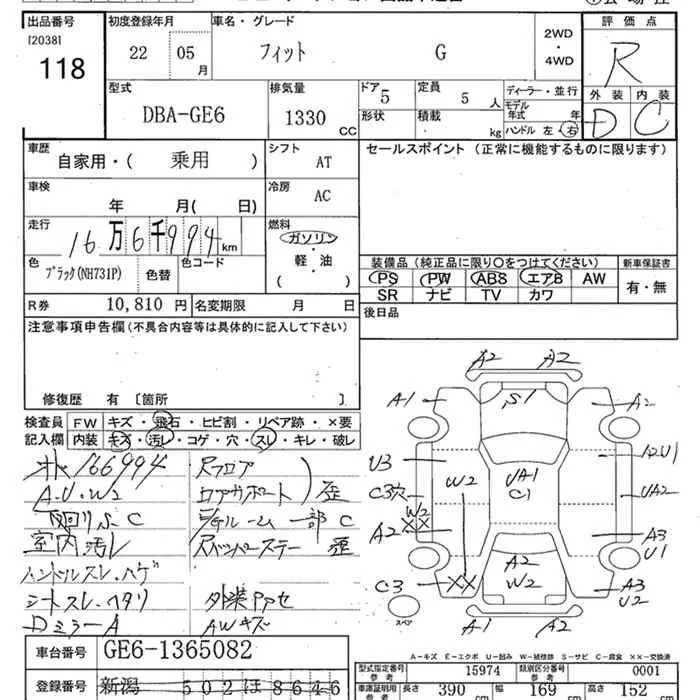 出品番号 初度登録年月 車名・グレード 評価点
[2038]
118
22 05 月
フィット G
2WD
・
4WD
R
型式 排気量 ドア 定員 ディーラー・並行 外装 内装
DBA-GE6 1330 CC
5 5 人
モデル年式 年
形状 積載 kg ハンドル 左・右
D C
車歴 シフト セールスポイント (正常に機能するものに限ります)
自家用・( 乗用 ) AT
車検 冷房
年 月( 日) AC
走行 燃料
16万6千994km
ガソリン
軽・油
( )
色 色替 色コード
ブラック(NH731P)
装備品 (純正品に限り○をつけてください) 新車保証書
PS PW ABS エアB AW
SR ナビ TV カワ
有・無
R券 10,810 円 名変期限 月 日
後日品
注意事項申告欄(不具合内容等は具体的に記入して下さい)
修復歴 有 〔箇所 〕
検査員 FW キズ・飛石・ヒビ割・リペア跡・×要
記入欄 内装 キズ・汚レ・コゲ・穴・スレ・キレ・破レ
166994
A.U.W2
下回りS.C
室内汚レ
ハンドルスレ.ハゲ
シートスレ.ヘタリ
DミラーA
Rフロア
ロアサポート
歪
一部C
歪
AWキズ
A2 A2
A1 S1 A2
U3 W2 UA1 C1 A2U1
C3穴 UA2
W2
××
A2 A2 W2 A3 U1
C3 ×× A3 U2
スペア
A1 A2
A=キズ E=エクボ U=凹み W=補修跡 S=サビ C=腐食 ××=交換済
車台番号 GE6-1365082
登録番号 新潟 502 ほ 8646
型式指定番号 参考 15974 類別区分番号 参考 0001
車庫証明用 参考 長さ 390 cm 幅 169 cm 高さ 152 cm